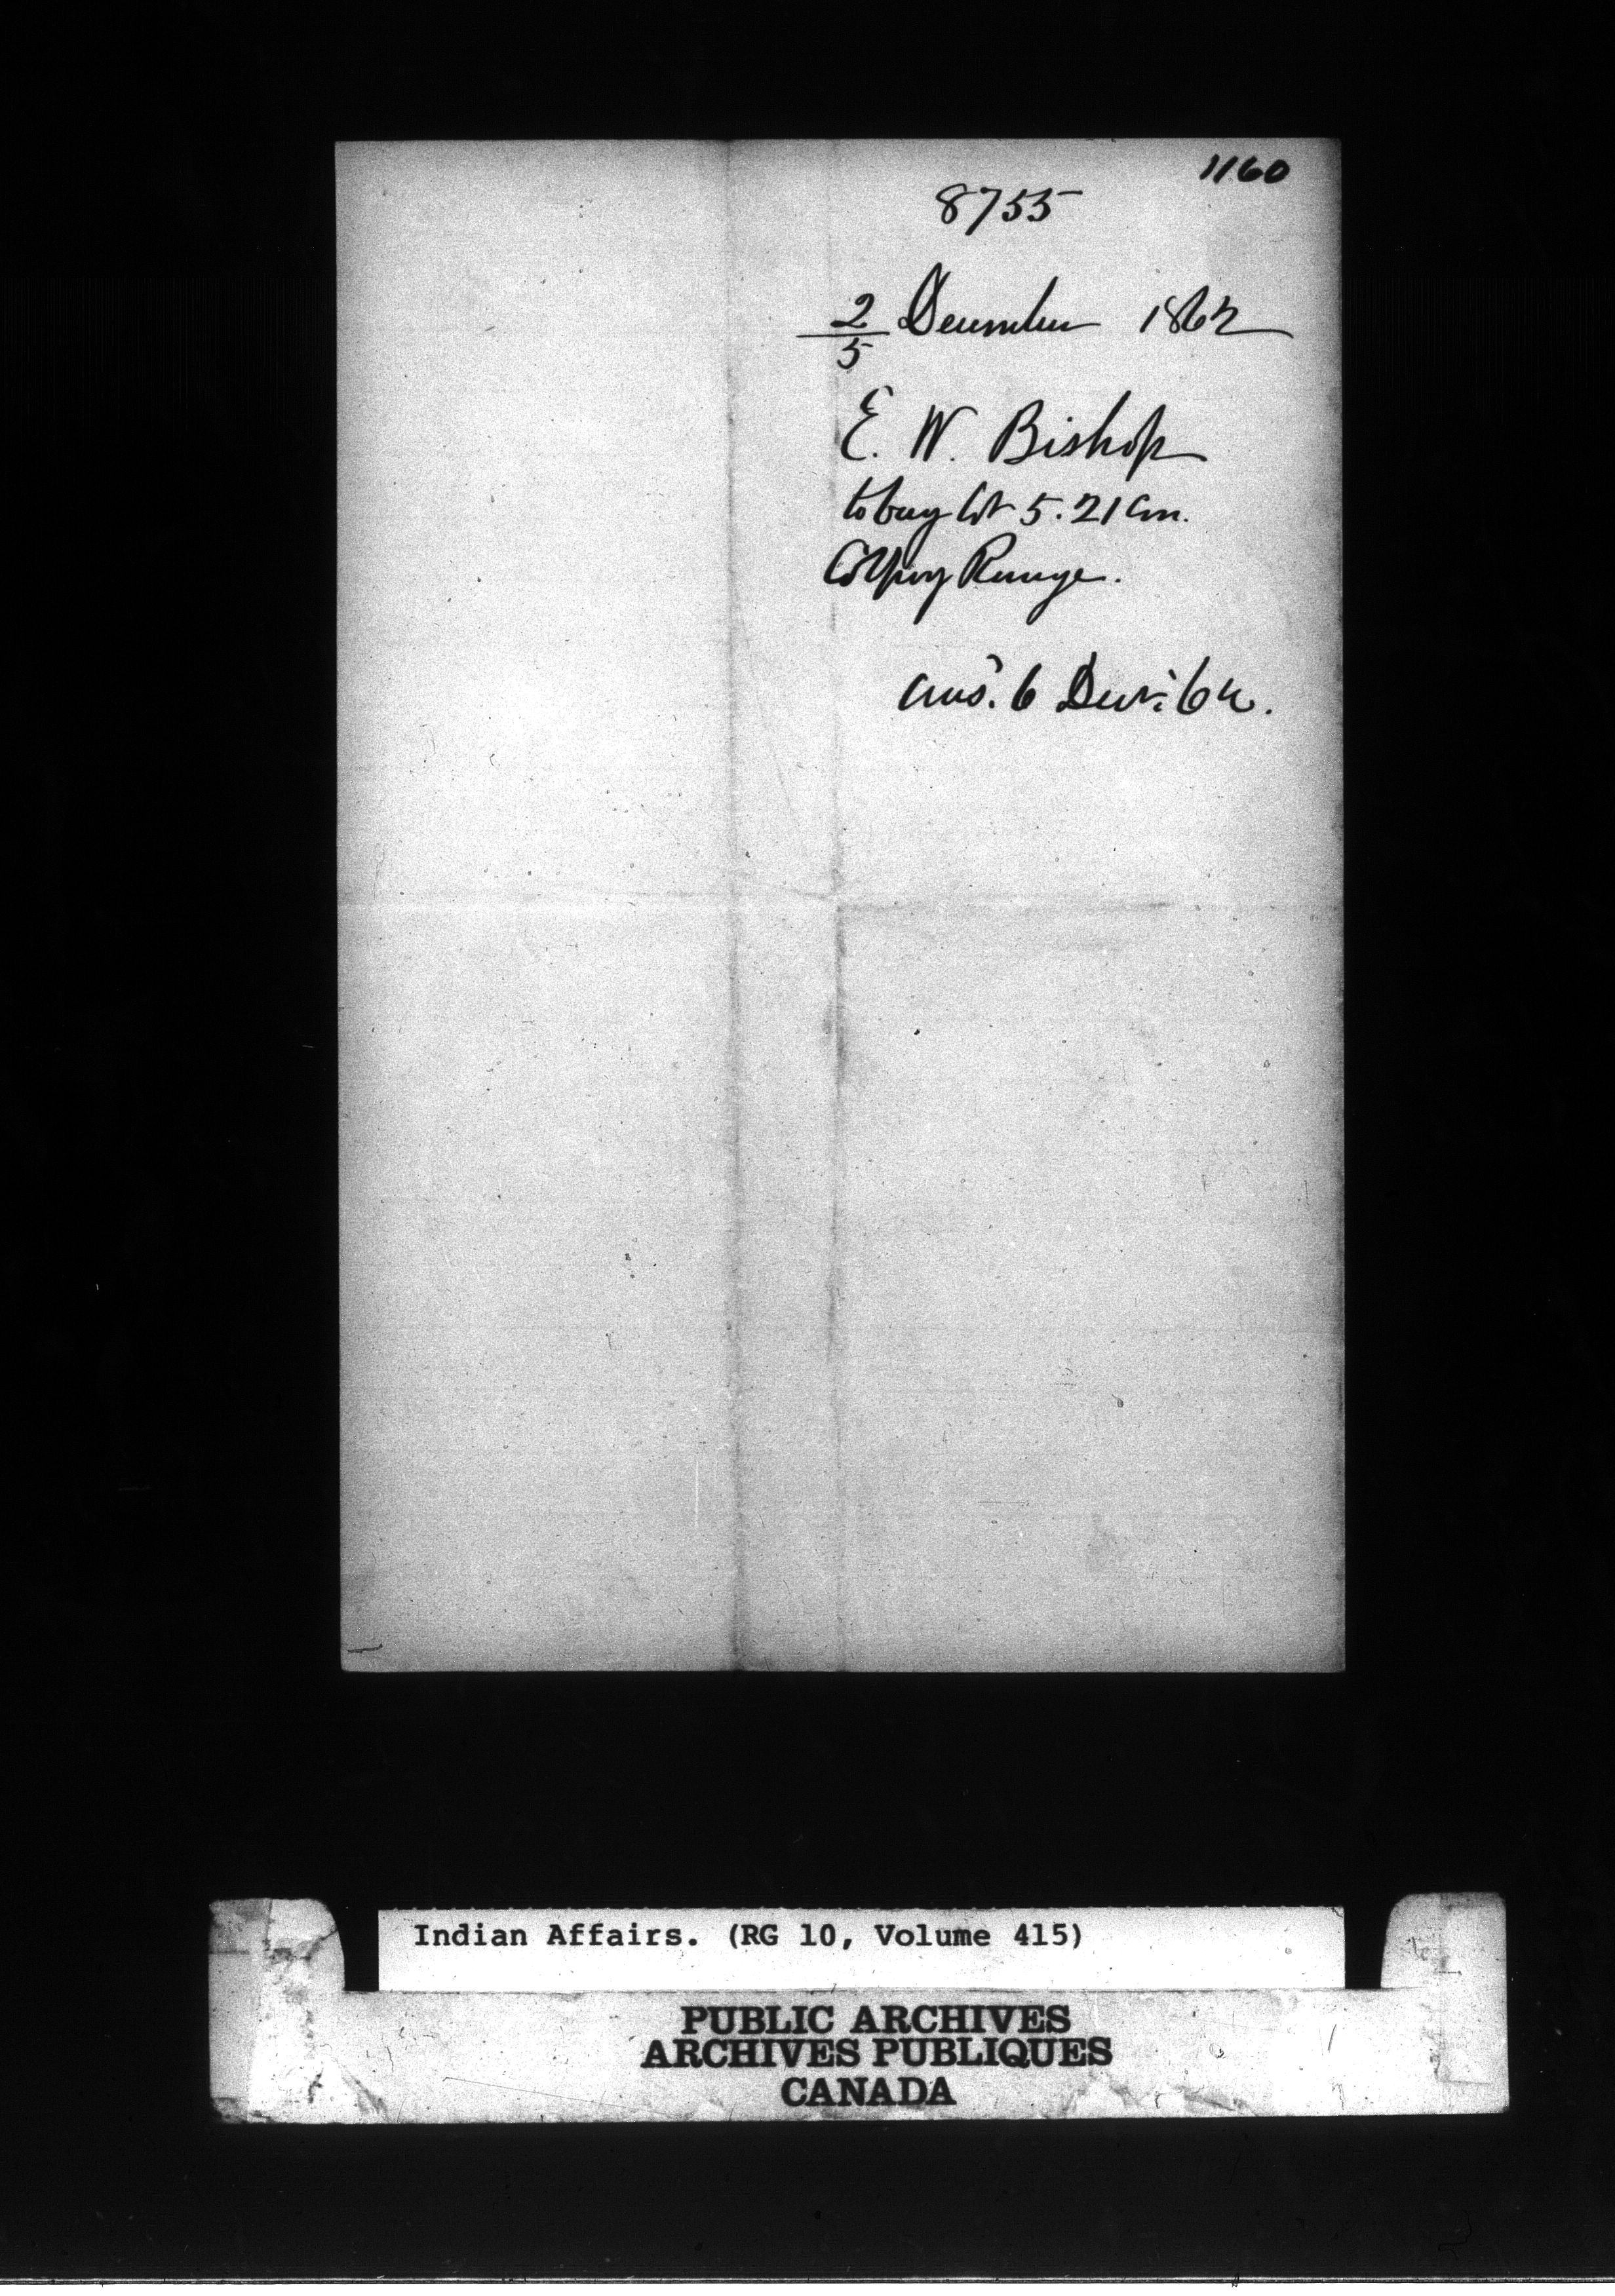 1160
8755
2/5 December 1862
E. W. Bishop
to buy lot 5. 21 Con.
Colpoy Range.
ans'. 6 Decr: 62.
Indian Affairs. (RG 10, Volume 415)
PUBLIC ARCHIVES
ARCHIVES PUBLIQUES
CANADA